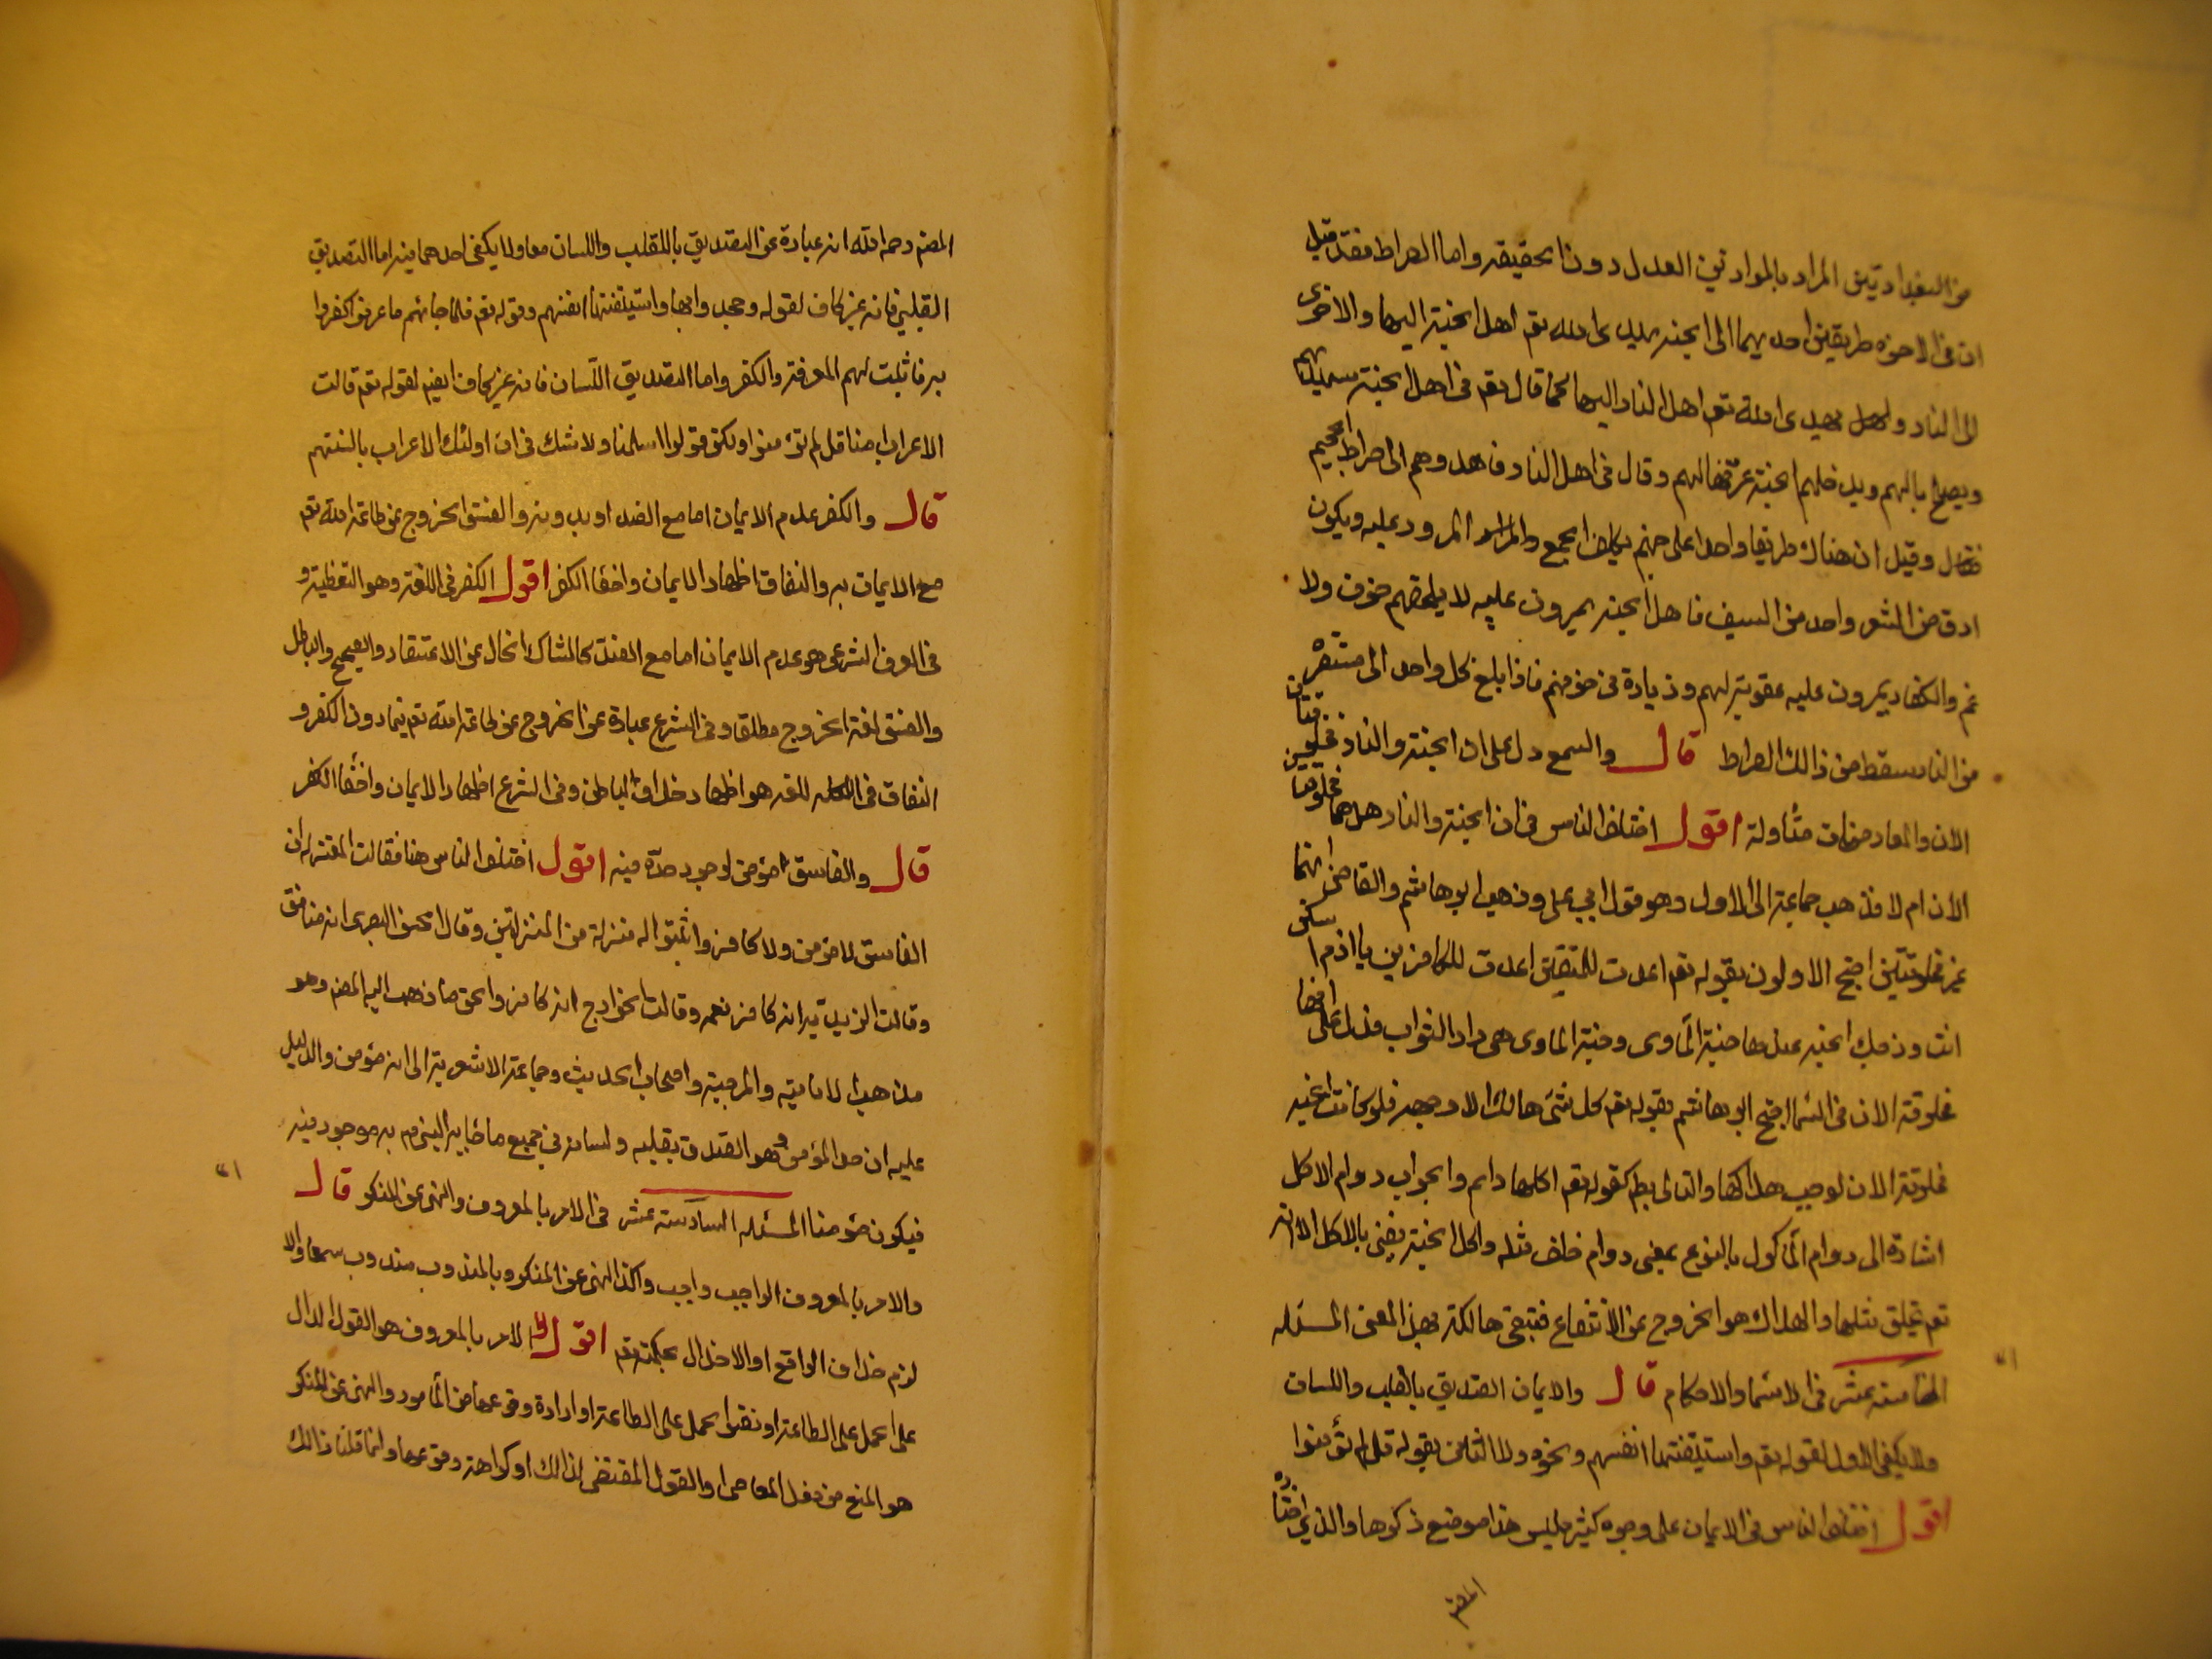 من البغداديين المراد بالموازين العدل دون الحقيقة واما الصراط فقد قيل
ان في الاخرة طريقين احديهما الى الجنة يهدى الله تعم اهل الجنة اليها والاخرى
الى النار ويهدى الله تعم اهل النار اليها كما قال تعم في اهل الجنة سيهديهم
ويصلح بالهم ويدخلهم الجنة عرفها لهم وقال في اهل النار فاهدوهم الى صراط الجحيم
وقيل ان هناك طريقا واحدا على جهنم يكلف الجميع المرور عليه ويكون
ادق من الشعر واحد من السيف فاهل الجنة يمرون عليه لا يلحقهم خوف ولا
غم والكفار يمرون عليه عقوبة لهم وزيادة في خوفهم فاذا بلغ كل واحد الى مستقره
من النار سقط من ذالك الصراط قال والسمع دل على ان الجنة والنار مخلوقتان
الان والمعارضات متأولة اقول اختلف الناس في ان الجنة والنار هل هما مخلوقتين
الان ام لا فذهب جماعة الى الاول وهو قول ابي على وذهب ابو هاشم والقاضى انهما
غير مخلوقتين احتج الاولون بقوله تعم اعدت للمتقين اعدت للكافرين يا ادم اسكن
انت وزوجك الجنة عندها جنة المأوى وجنة الماوى هى دار الثواب فدل على انها
مخلوقة الان في السما احتج ابو هاشم بقوله تعم كل شئ هالك الا وجهه فلو كانت الجنة
مخلوقة الان لوجب هلاكها والتالى بط كقوله تعم اكلها دايم والجواب دوام الاكل
اشارة الى دوام المأكول بالنوع بمعنى دوام خلق مثله واكل الجنة يفنى بالاكل الا انه
تعم يخلق مثلها والهلاك هو الخروج عن الانتفاع فتبقى هالكة بهذا المعنى المسئله
الخامسة عشر في الاسما والاحكام قال والايمان التصديق بالقلب واللسان
ولا يكفى الاول لقوله تعم واستيقنتها انفسهم ونحوه ولا الثانى بقوله قل لم تؤمنوا
اقول اختلف الناس في الايمان على وجوه كثيرة ليس هذا موضع ذكرها والذي اختاره
المصنم
المصنم رحمه الله انه عبارة عن التصديق بالقلب واللسان معا ولا يكفى احدهما فيه اما التصديق
القلبي فانه غير كاف لقوله وجحدوا بها واستيقنتها انفسهم وقوله تعم فلما جائهم ما عرفوا كفروا
به فاثبت لهم المعرفة والكفر واما التصديق اللسان فانه غير كاف ايضم لقوله تعم قالت
الاعراب امنا قل لم تؤمنوا ولكن قولوا اسلمنا ولا شك في ان اولئك الاعراب بالسنتهم
قال والكفر عدم الايمان اما مع الضد او بدونه والفسق الخروج عن طاعة الله تعم
مع الايمان به والنفاق اظهار الايمان واخفا الكفر اقول الكفر في اللغة وهو التغطية و
في العرف الشرعى هو عدم الايمان اما مع الضد كالشاك الخال عن الاعتقاد والصحيح والباطل
والفسق لغة الخروج مطلقا وفي الشرع عبارة عن الخروج عن طاعة الله تعم فيما دون الكفر و
النفاق في اللغه هو اظهار خلاف الباطن وفي الشرع اظهار الايمان واخفا الكفر
قال والفاسق مؤمن لوجود حده فيه اقول اختلف الناس هنا فقالت المعتزله ان
الفاسق لا مؤمن ولا كافر واثبتوا له منزلة من المنزلتين وقال الحسن البصرى انه منافق
وقالت الزيدية انه كافر نعمه وقالت الخوارج انه كافر والحق ما ذهب اليه المصنم وهو
مذهب الامامية والمرجية واصحاب الحديث وجماعة الاشعرية الى انه مؤمن والدليل
عليه ان حد المؤمن وهو المصدق بقلبه ولسانه في جميع ما جا به النبي م به موجود فيه
فيكون مؤمنا المسئله السادسة عشر في الامر بالمعروف والنهى عن المنكر قال
والامر بالمعروف الواجب واجب وكذا النهى عن المنكر وبالمندوب مندوب سمعا والا
لزم خلاف الواقع او الاخلال بحكمته تعم اقول الامر بالمعروف هو القول الدال
على الحمل على الطاعة او نفس الحمل على الطاعة او ارادة وقوعها من المأمور والنهى عن المنكر
هو المنع من فعل المعاصى او القول المقتضى لذالك او كراهة وقوعها وانما قلنا ذالك